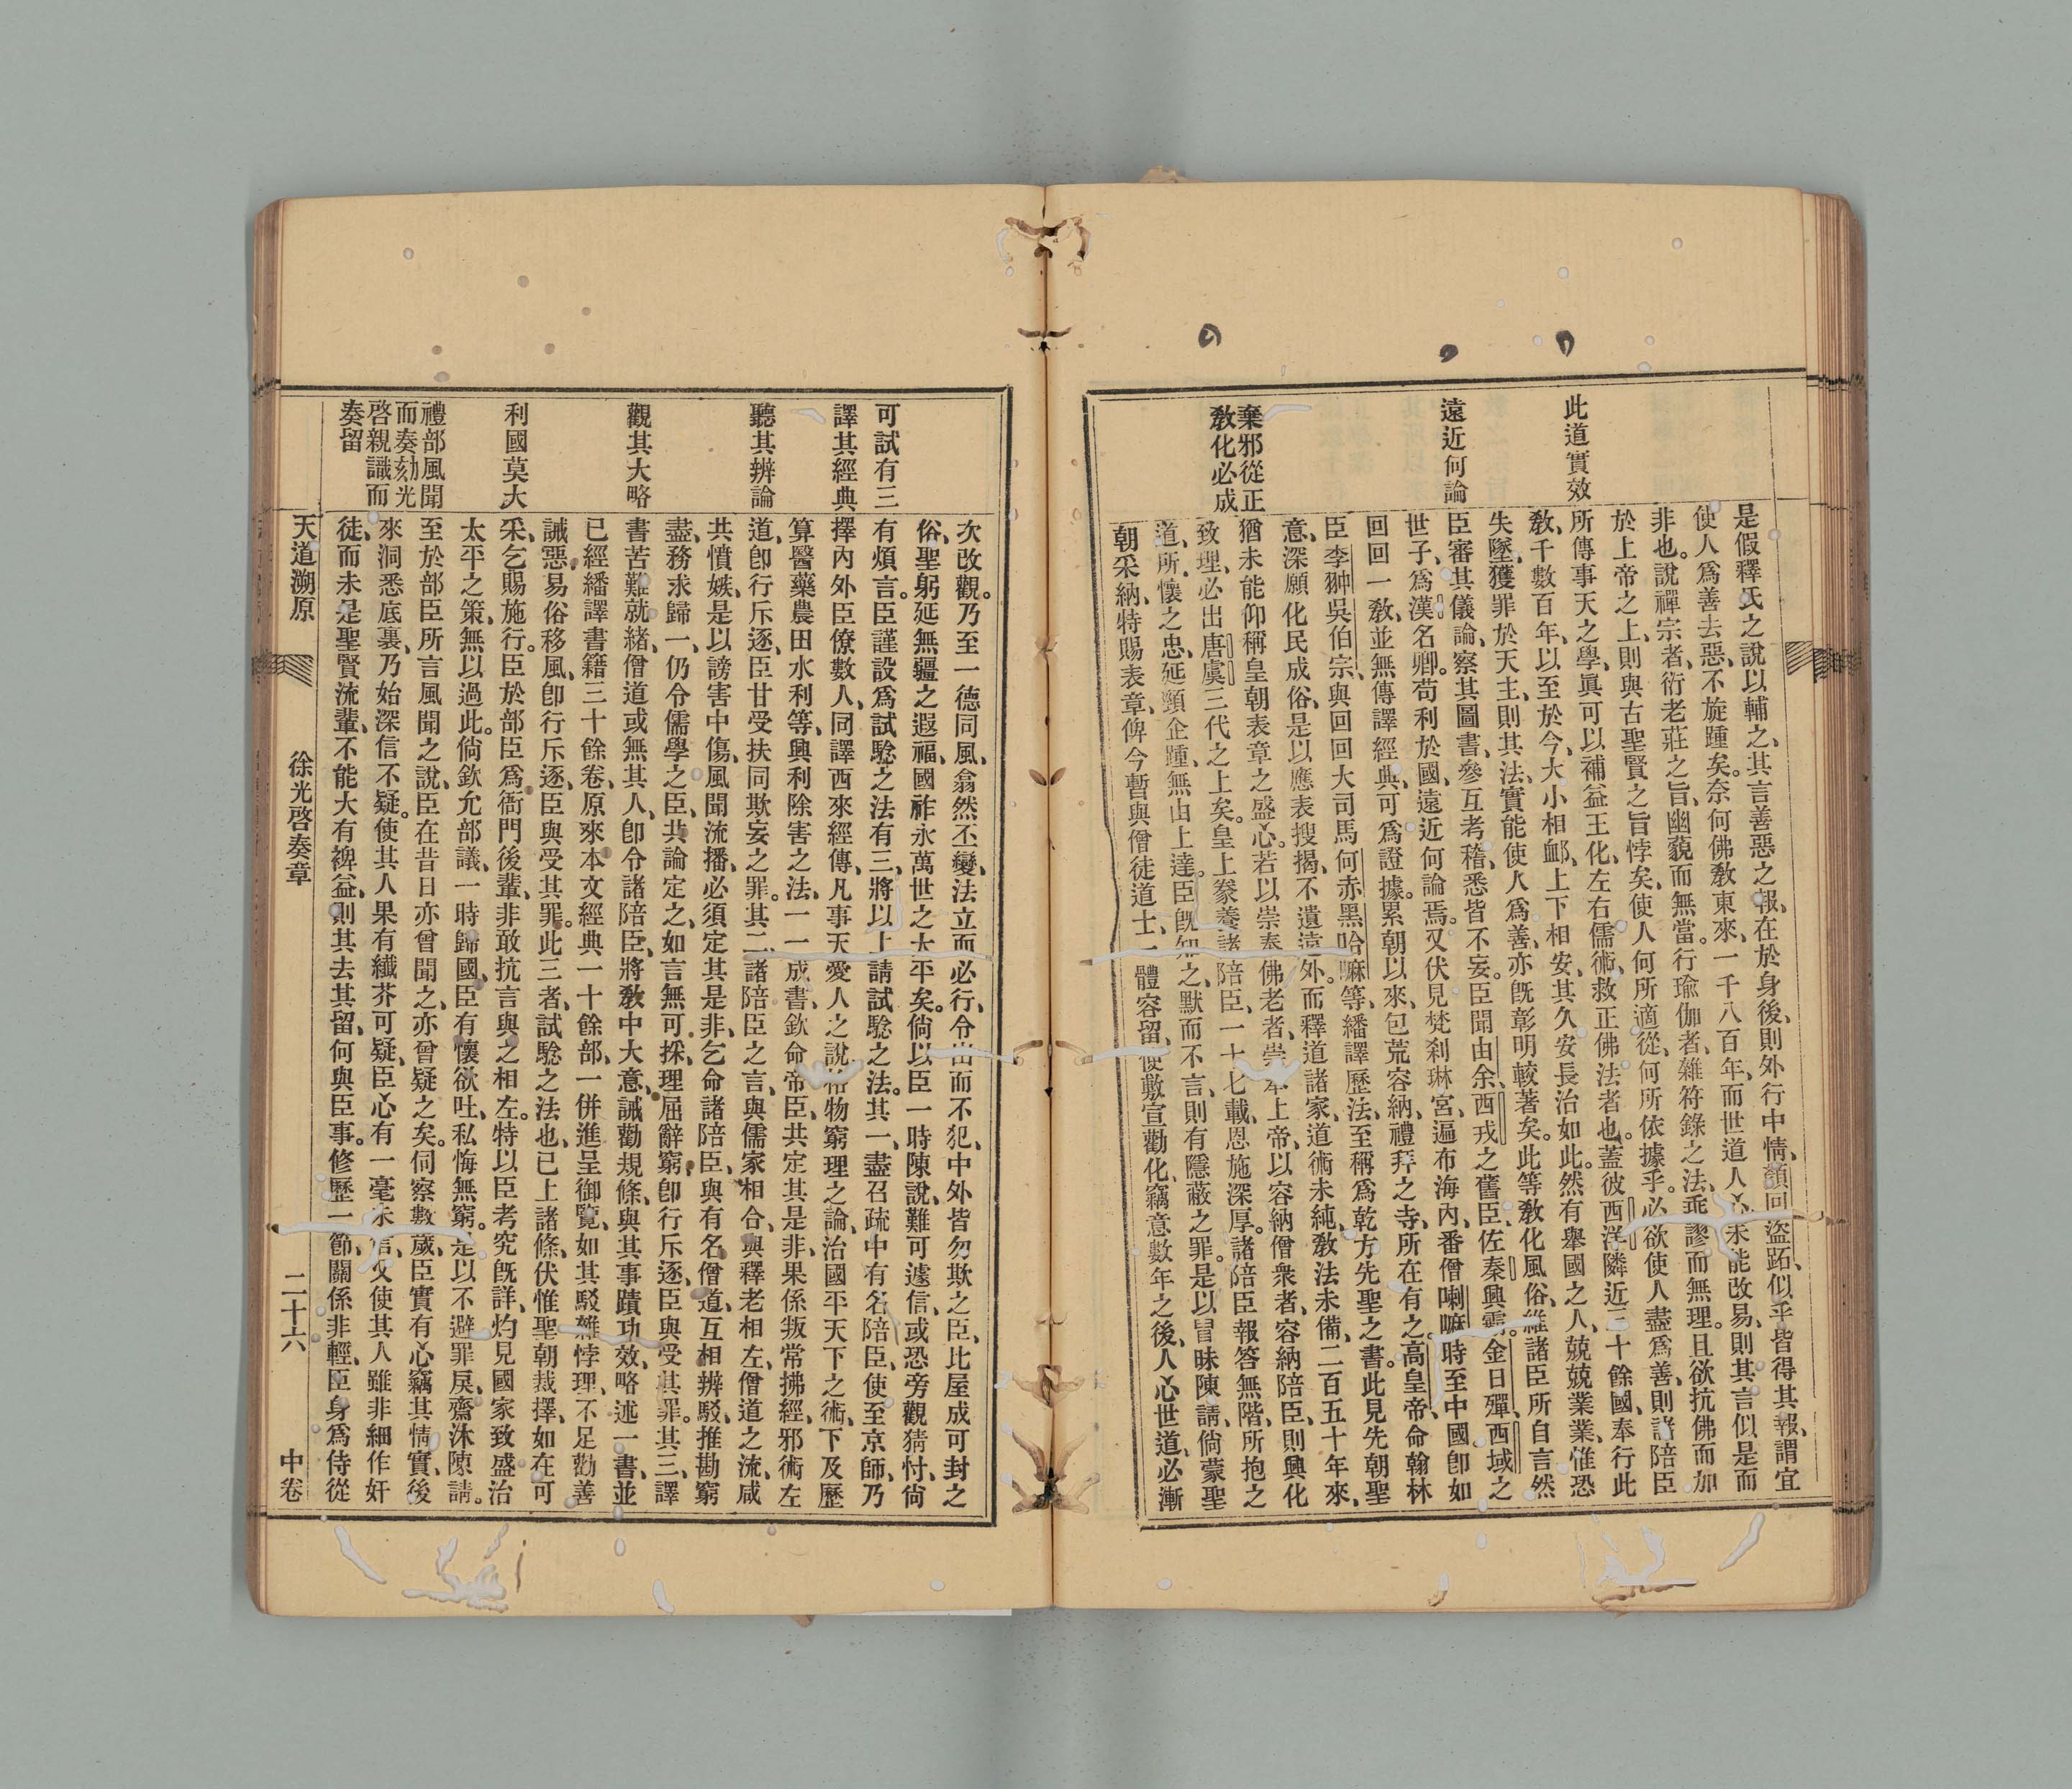 此道實效
遠近何論
棄邪從正
敎化必成
是假釋氏之說以輔之、其言善惡之報、在於身後、則外行中情、顏回盜跖、似乎皆得其報、謂宜
使人爲善去惡、不旋踵矣。奈何佛敎東來、一千八百年、而世道人心未能改易、則其言似是而
非也。說禪宗者、衍老莊之旨、幽藐而無當。行瑜伽者、雜符籙之法、乖謬而無理。且欲抗佛而加
於上帝之上、則與古聖賢之旨悖矣、使人何所適從、何所依據乎。必欲使人盡爲善、則諸陪臣
所傳事天之學、眞可以補益王化、左右儒術、救正佛法者也。蓋彼西洋隣近三十餘國、奉行此
敎、千數百年、以至於今、大小相衈、上下相安、其久安長治如此。然有舉國之人、兢兢業業、惟恐
失墜、獲罪於天主、則其法、實能使人爲善、亦旣彰明較著矣。此等敎化風俗、雖諸臣所自言、然
臣審其儀論、察其圖書、參互考稽、悉皆不妄。臣聞由余、西戎之舊臣、佐秦興霸。金日殫、西域之
世子、爲漢名卿。苟利於國、遠近何論焉。又伏見梵刹琳宮、遍布海內、番僧喇嘛、時至中國、卽如
回回一敎、並無傳譯經典、可爲證據。累朝以來、包荒容納、禮拜之寺、所在有之。高皇帝命翰林
臣李翀吳伯宗、與回回大司馬何赤黑哈嘛等、繙譯歷法、至稱爲乾方先聖之書。此見先朝聖
意、深願化民成俗、是以應表搜揭、不遺遠外。而釋道諸家、道術未純、敎法未備、二百五十年來、
猶未能仰稱皇朝表章之盛心。若以崇奉佛老者、崇奉上帝、以容納僧衆者、容納陪臣、則興化
致理、必出唐虞三代之上矣。皇上豢養諸陪臣、一十七載、恩施深厚。諸陪臣報答無階、所抱之
道、所懷之忠、延頸企踵、無由上達。臣旣知之、默而不言、則有隱蔽之罪。是以冒昧陳請、倘蒙聖
朝采納、特賜表章、俾今暫與僧徒道士、一體容留、使敷宣勸化、竊意數年之後、人心世道、必漸
可試有三
譯其經典
聽其辨論
觀其大略
利國莫大
禮部風聞
而奏劾光
啓親識而
奏留
次改觀。乃至一德同風、翕然丕變、法立而必行、令出而不犯、中外皆勿欺之臣、比屋成可封之
俗、聖躬延無疆之遐福、國祚永萬世之太平矣。倘以臣一時陳說、難可遽信、或恐旁觀猜忖、尙
有煩言。臣謹設爲試驗之法有三、將以上請試驗之法。其一、盡召疏中有名陪臣、使至京師、乃
擇內外臣僚數人、同譯西來經傳、凡事天愛人之說、格物窮理之論、治國平天下之術、下及歷
算醫藥農田水利等、興利除害之法、一一成書、欽命帝臣、共定其是非、果係叛常拂經、邪術左
道、卽行斥逐、臣甘受扶同欺妄之罪。其二、諸陪臣之言、與儒家相合、與釋老相左、僧道之流、咸
共憤嫉、是以謗害中傷、風聞流播、必須定其是非、乞命諸陪臣、與有名僧道、互相辨駁、推勘窮
盡、務求歸一、仍令儒學之臣、共論定之、如言無可採、理屈辭窮、卽行斥逐、臣與受其罪。其三、譯
書苦難就緒、僧道或無其人、卽令諸陪臣、將敎中大意、誡勸規條、與其事蹟功效、略述一書、並
已經繙譯書籍三十餘卷、原來本文經典一十餘部、一併進呈御覽、如其駁雜悖理、不足勸善
誡惡、易俗移風、卽行斥逐、臣與受其罪。此三者、試驗之法也、已上諸條、伏惟聖朝裁擇、如在可
采、乞賜施行。臣於部臣爲衙門後輩、非敢抗言與之相左。特以臣考究旣詳、灼見國家致盛治
太平之策、無以過此。倘欽允部議、一時歸國、臣有懷欲吐、私悔無窮。是以不避罪戾、齋沐陳請。
至於部臣所言風聞之說、臣在昔日亦曾聞之、亦曾疑之矣。伺察數歲、臣實有心竊其情實、後
來洞悉底裏、乃始深信不疑。使其人果有纖芥可疑、臣心有一毫未信、又使其人雖非細作奸
徒、而未是聖賢流輩、不能大有裨益、則其去其留、何與臣事。修歷一節、關係非輕、臣身爲侍從
天道溯原
徐光啓奏章
二十六
中卷